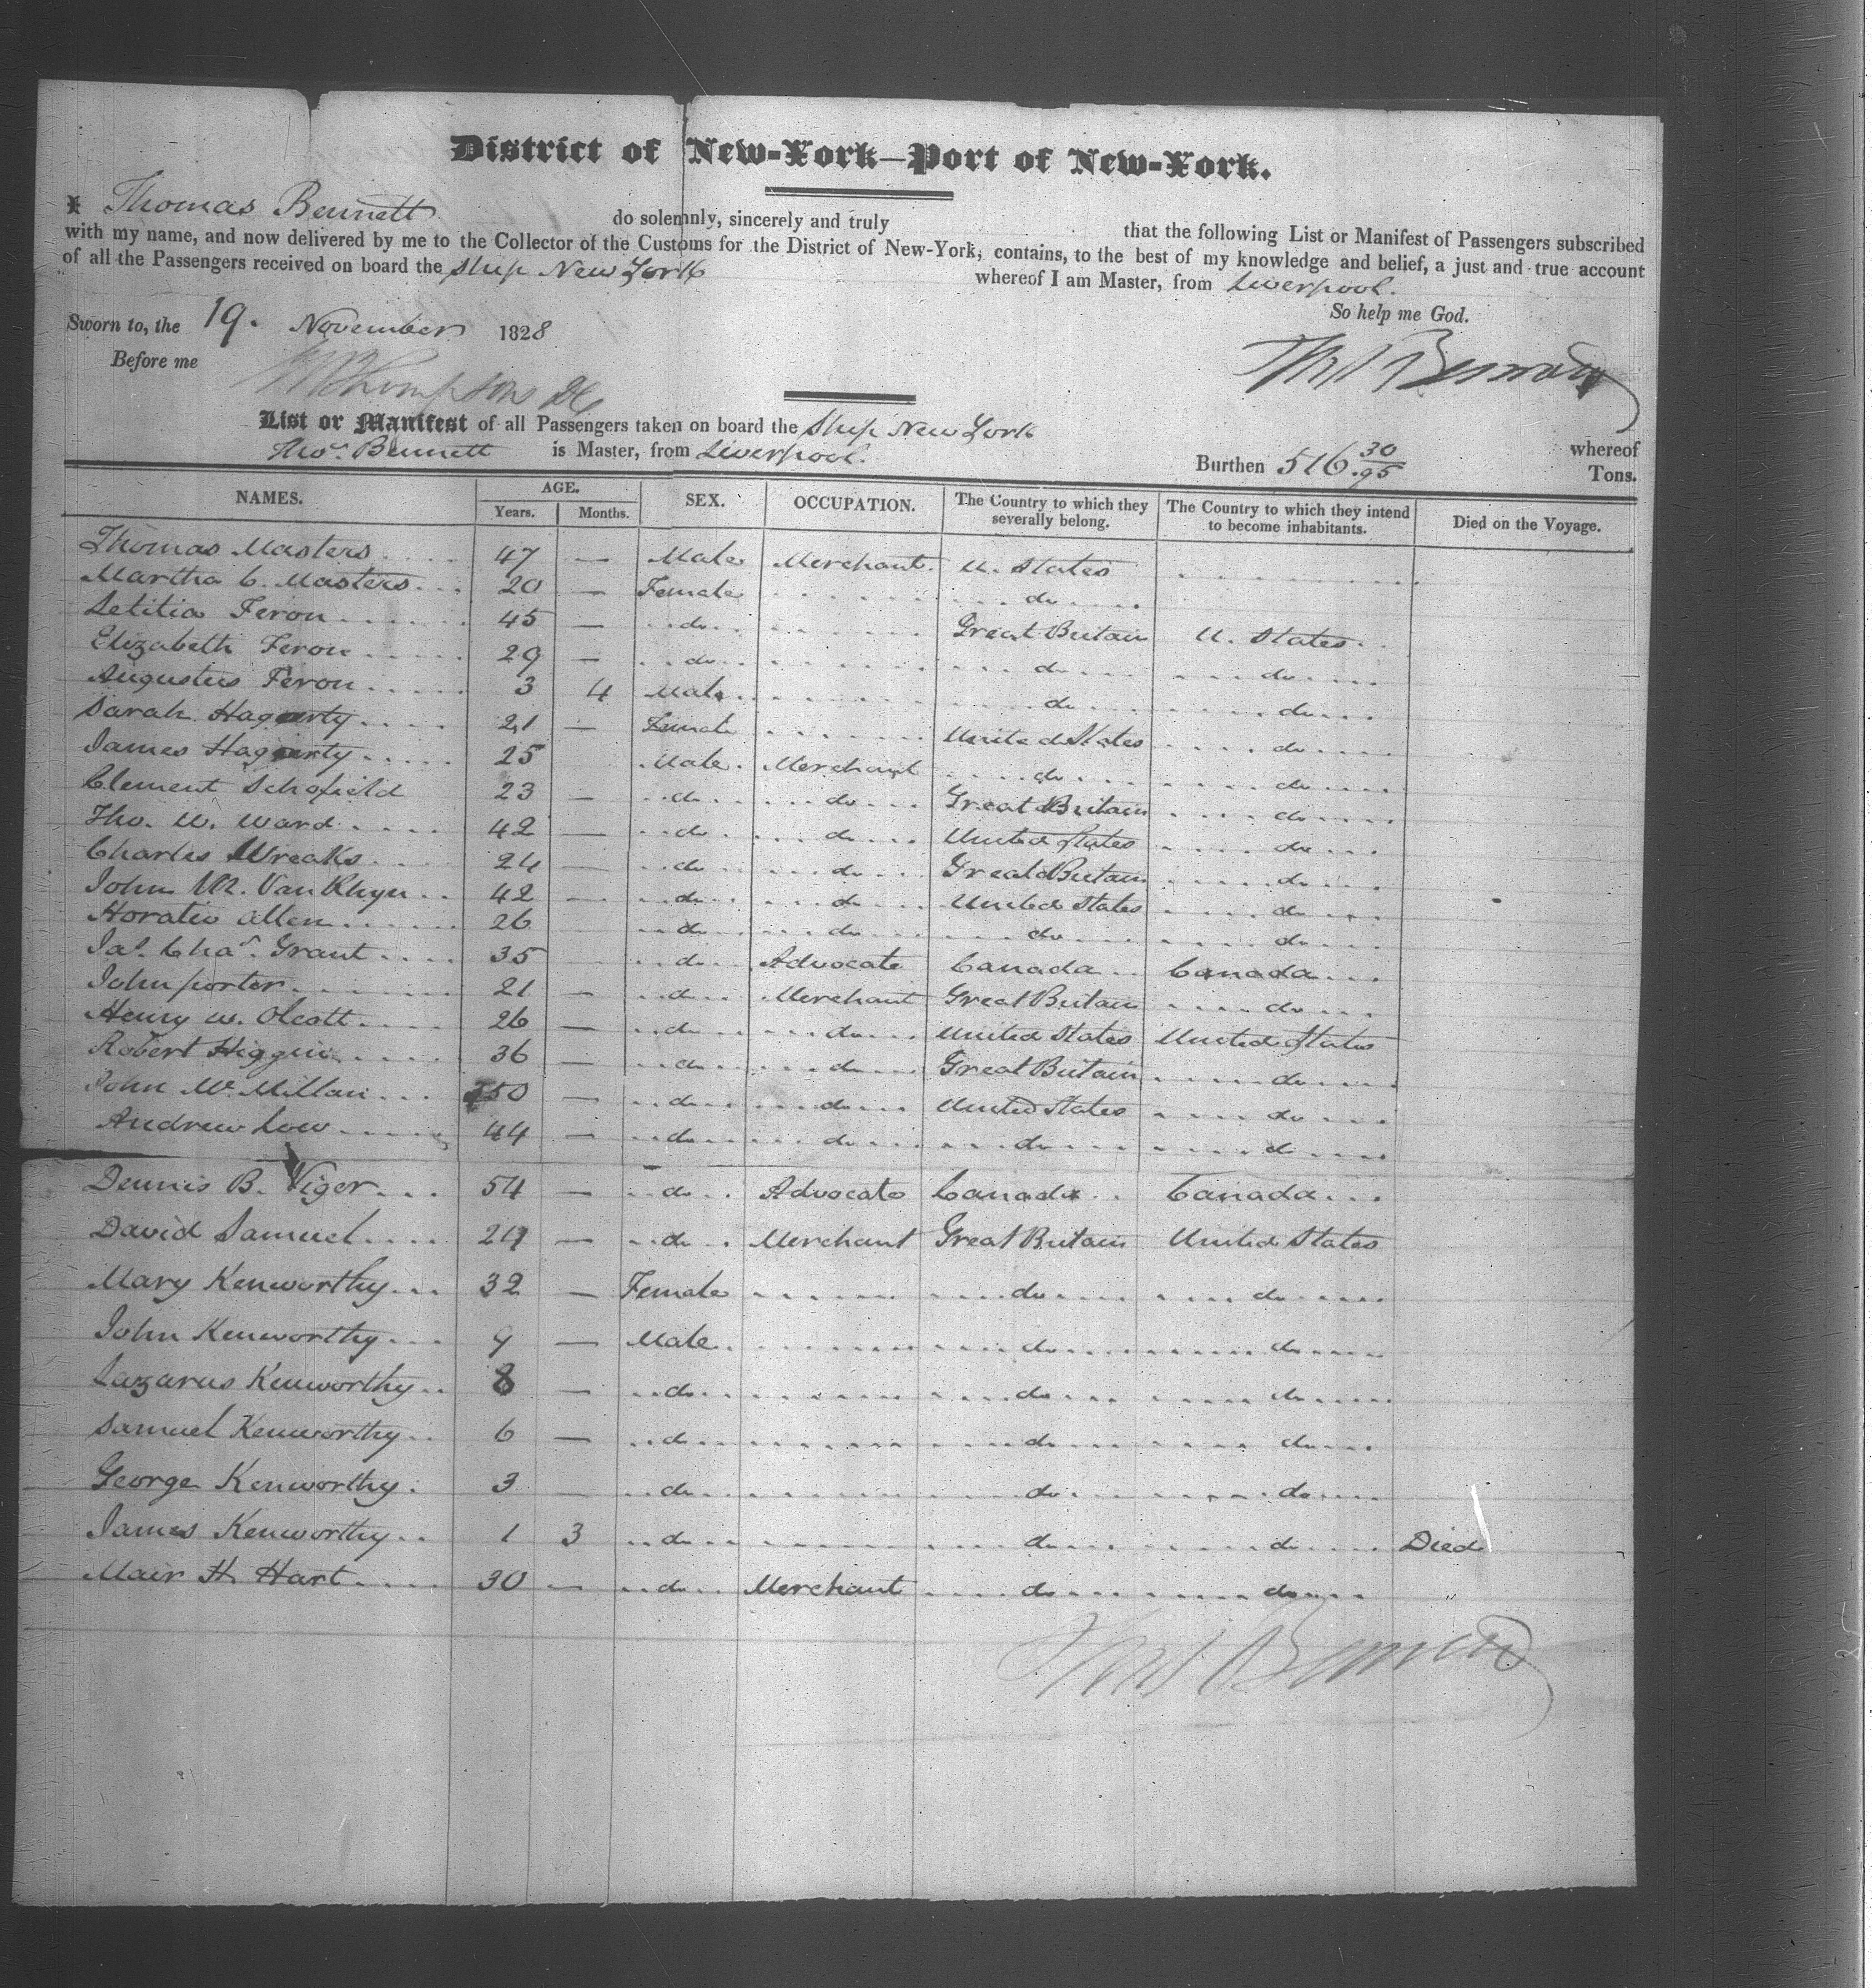 District of New-York—Port of New-York.
I Thomas Bennett do solemnly, sincerely and truly that the following List or Manifest of Passengers subscribed
with my name, and now delivered by me to the Collector of the Customs for the District of New-York, contains, to the best of my knowledge and belief, a just and true account
of all the Passengers received on board the Ship New York whereof I am Master, from Liverpool.
So help me God.
Sworn to, the 19. November 1828
Before me
Thompson Thos Bennett
List or Manifest of all Passengers taken on board the Ship New York whereof
Thos. Bennett is Master, from Liverpool. Burthen 516 30/95 Tons.
NAMES. AGE. SEX. OCCUPATION. The Country to which they severally belong. The Country to which they intend to become inhabitants. Died on the Voyage.
Years. Months.
Thomas Masters 47 — Male Merchant. U. States
Martha C. Masters 20 — Female do
Letitia Feron 45 — do Great Britain U. States
Elizabeth Feron 29 — do do do
Augustus Feron 3 4 Male do do
Sarah Hagerty 21 — Female United States do
James Hagerty 25 Male Merchant do do
Clement Schofield 23 — do do Great Britain do
Tho. W. Ward 42 — do do United States do
Charles Wreaks 24 — do do Great Britain do
John M. Van Rhyn 42 — do do United States do
Horatio Allen 26 do do do do
Jas. Chas. Grant 35 do Advocate Canada Canada
John porter 21 — do Merchant Great Britain do
Henry W. Olcott 26 — do do United States United States
Robert Higgin 36 — do do Great Britain do
John Mc Millan 50 — do do United States do
Andrew Low 44 — do do do do
Dennis B. Viger 54 — do Advocate Canada Canada
David Samuel 24 — do Merchant Great Britain United States
Mary Kenworthy 32 — Female do do
John Kenworthy 9 — Male do do
Lazarus Kenworthy 8 — do do do
Samuel Kenworthy 6 — do do do
George Kenworthy 3 — do do do
James Kenworthy 1 3 do do do Died
Mair H. Hart 30 — do Merchant do do "
Thos Bennett